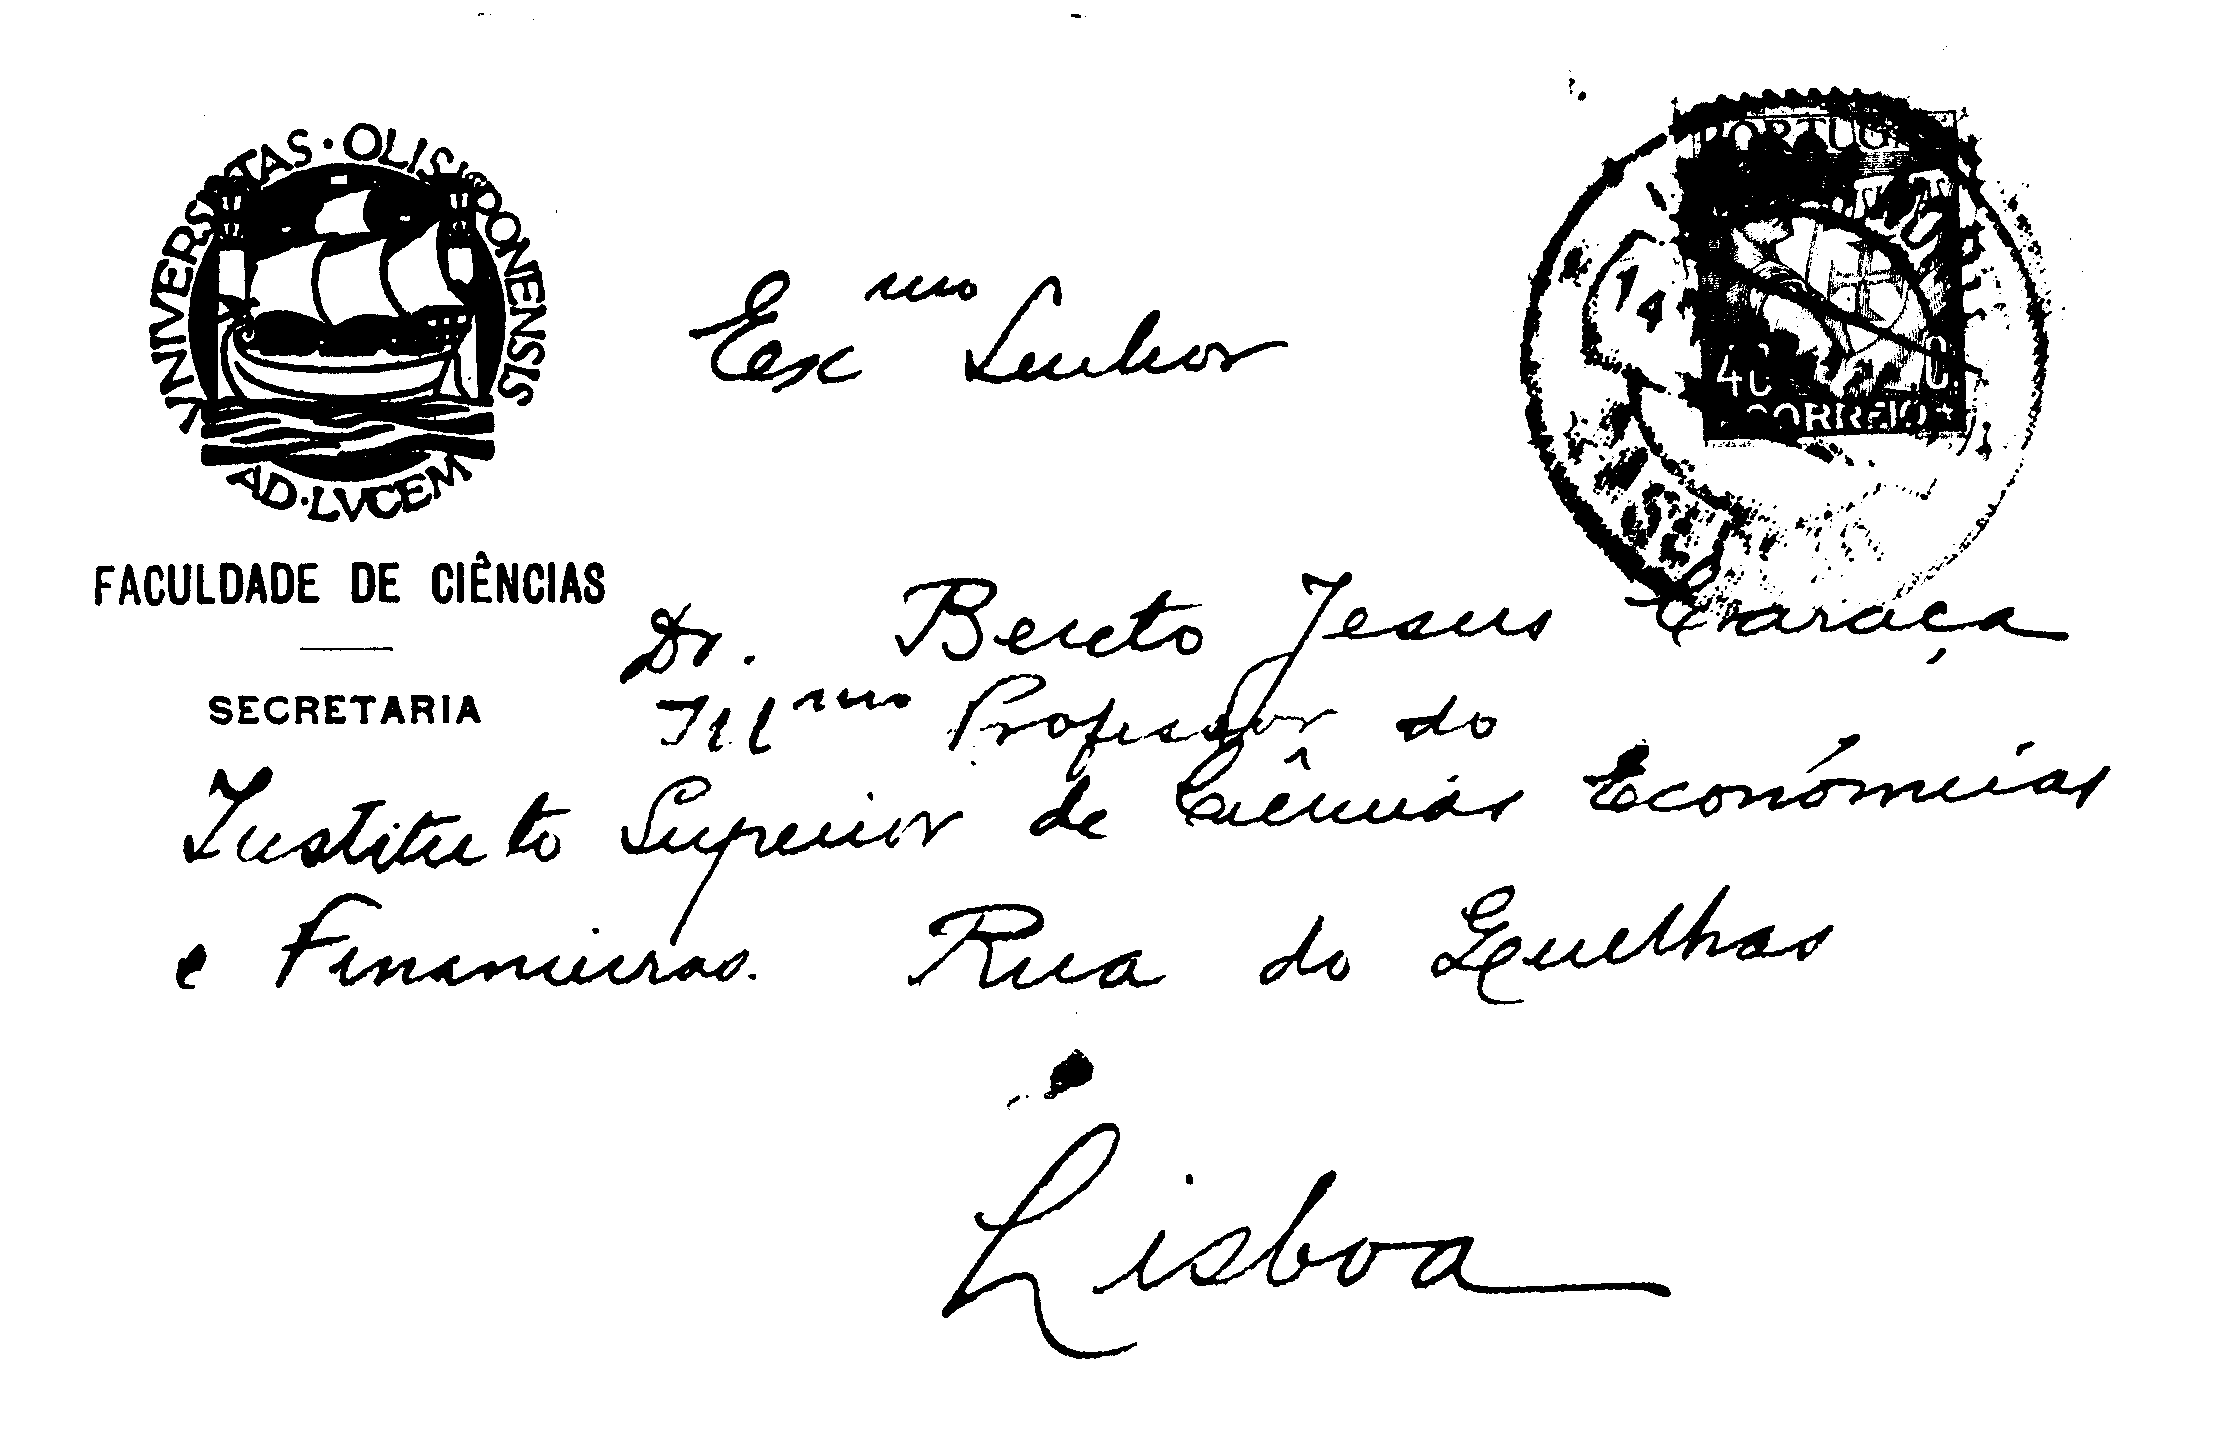 VNIVERSITAS · OLISIPONENSIS
AD · LVCEM
FACULDADE DE CIÊNCIAS
SECRETARIA
PORTUGAL
14
40 C.
CORREIO
Exmo Senhor
Dr. Bento Jesus Caraça
Illmo Professor do
Instituto Superior de Ciências Económicas
e Financeiras. Rua do Quelhas
Lisboa